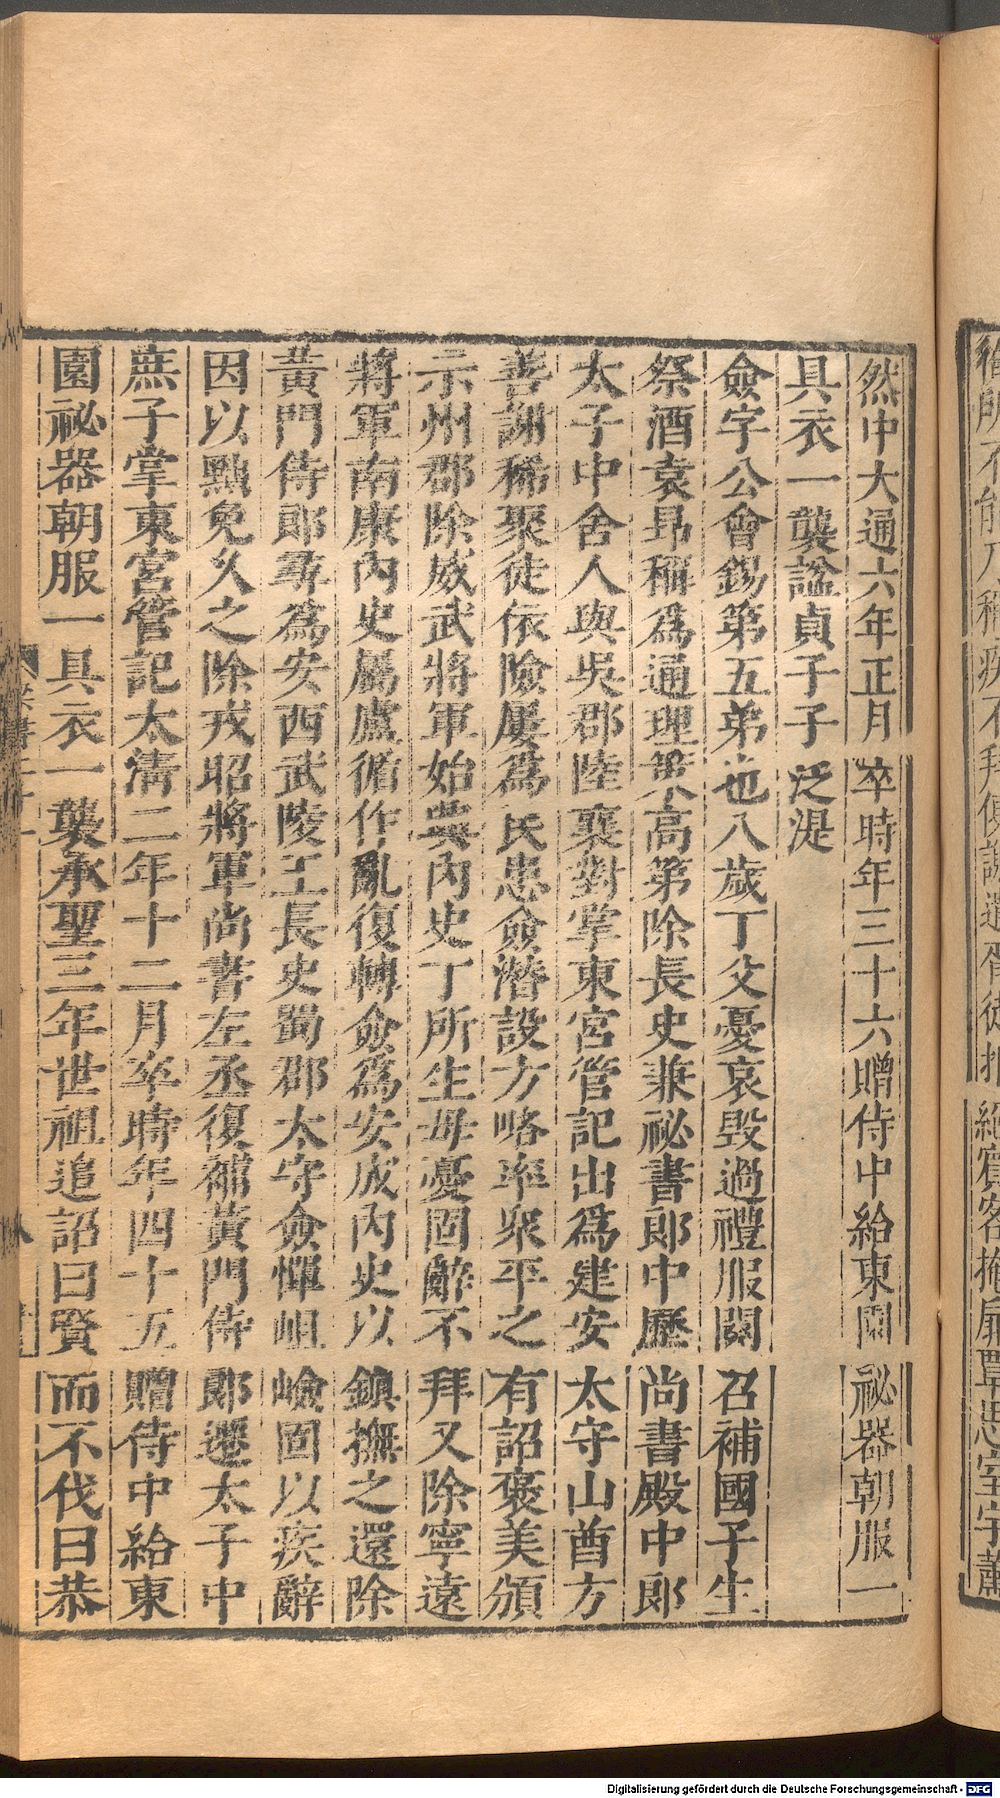 然中大通六年正月卒時年三十六贈侍中給東園祕器朝服一
具衣一襲諡貞子子泛湜
僉字公會錫第五弟也八歲丁父憂哀毀過禮服闋召補國子生
祭酒袁昻稱爲通理策高第除長史兼祕書郎中歷尚書殿中郎
太子中舍人與吳郡陸襄對掌東宮管記出爲建安太守山酋方
善謝稀聚徒依險屢爲民患僉潛設方略率衆平之有詔褒美頒
示州郡除威武將軍始興內史丁所生母憂固辭不拜又除寧遠
將軍南康內史屬盧循作亂復轉僉爲安成內史以鎮撫之還除
黃門侍郎尋爲安西武陵王長史蜀郡太守僉憚岨嶮固以疾辭
因以黜免久之除戎昭將軍尚書左丞復補黃門侍郎遷太子中
庶子掌東宮管記太淸二年十二月卒時年四十五贈侍中給東
園祕器朝服一具衣一襲承聖三年世祖追詔曰賢而不伐曰恭
Digitalisierung gefördert durch die Deutsche Forschungsgemeinschaft - DFG